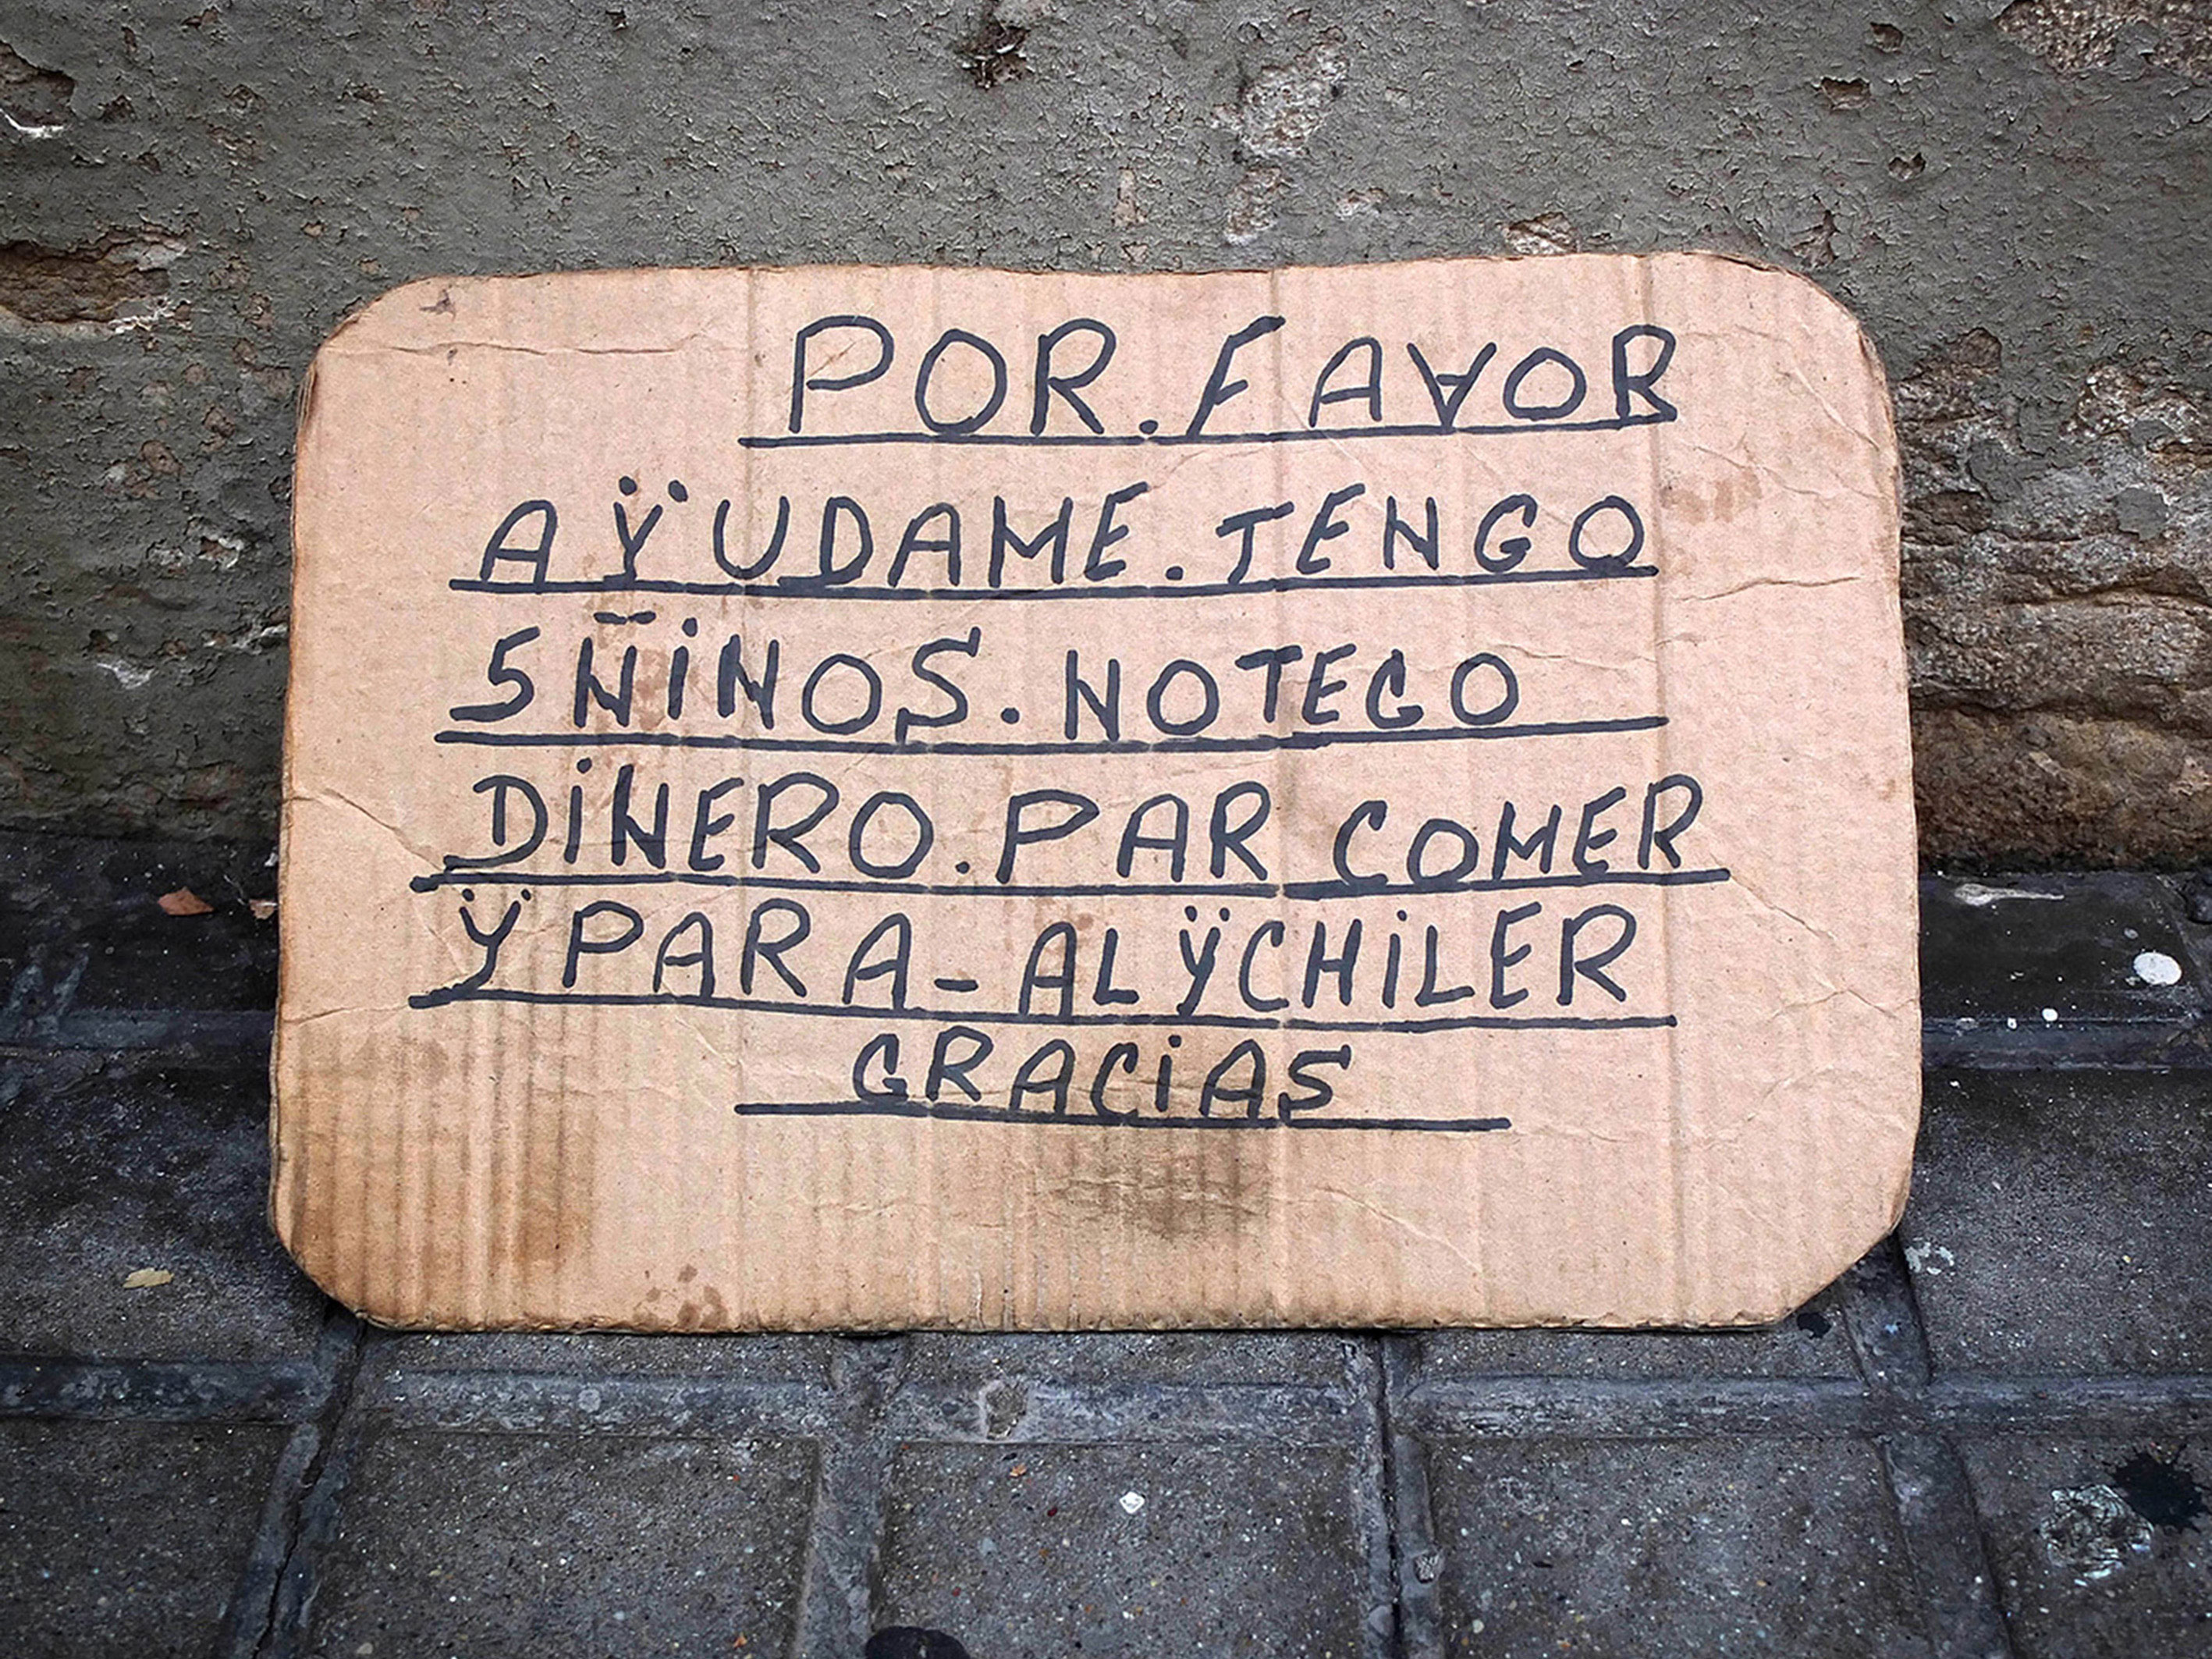 POR.FAVOR
AŸUDAME.TENGO
5 ÑiNOS.NOTEGO
DiNERO.PAR COMER
Ÿ PARA-ALŸCHiLER
GRACiAS